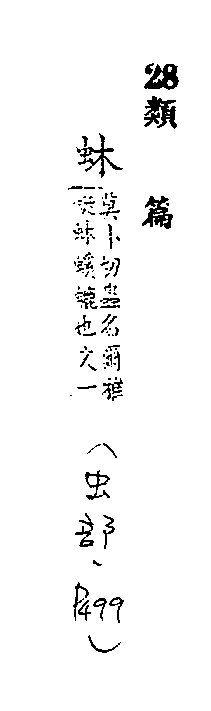 28類篇
蚞
莫卜切蟲名爾雅
蜓蚞螇螰也文一
（虫部、P499）